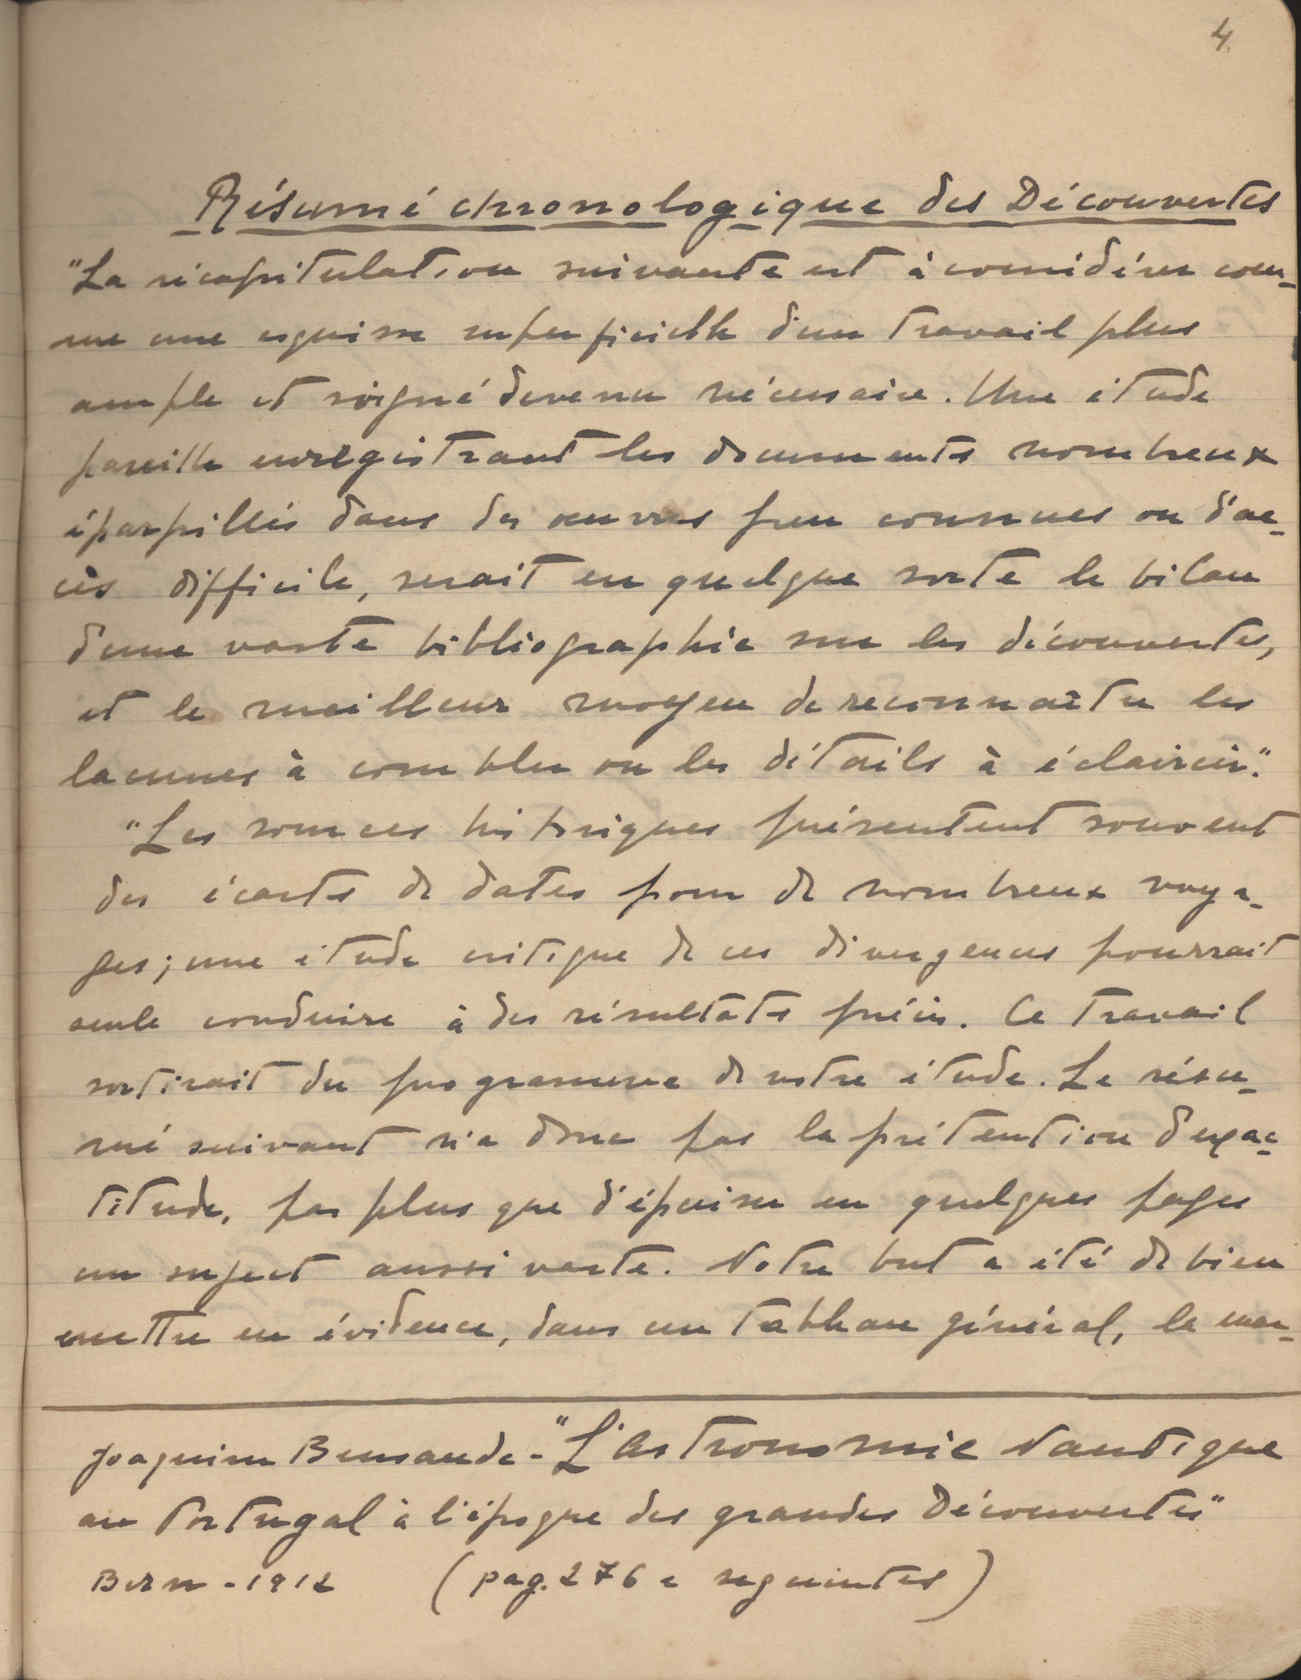 4
Résumé chronologique des Découvertes
"La récapitulation suivante est à considérer com-
me une esquisse superficielle d'un travail plus
ample et soigné devenu nécessaire. Une étude
pareille enregistrant les documents nombreux
éparpillés dans des œuvres peu connues ou d'ac-
cès difficile, serait en quelque sorte le bilan
d'une vaste bibliographie sur les découvertes,
et le meilleur moyen de reconnaître les
lacunes à combler ou les détails à éclaircir."
"Les sources historiques présentent souvent
des écarts de dates pour de nombreux voya-
ges; une étude critique de ces divergences pourrait
seule conduire à des résultats précis. Ce travail
sortirait du programme de notre étude. Le résu-
mé suivant n'a donc pas la prétention d'exac-
titude, pas plus que d'épuiser en quelques pages
un sujet aussi vaste. Notre but a été de bien
mettre en évidence, dans un tableau général, la mar-
Joaquim Bensaude - "L'Astronomie Nautique
au Portugal à l'époque des grandes Découvertes"
Bern - 1912 (pag. 276 e seguintes)